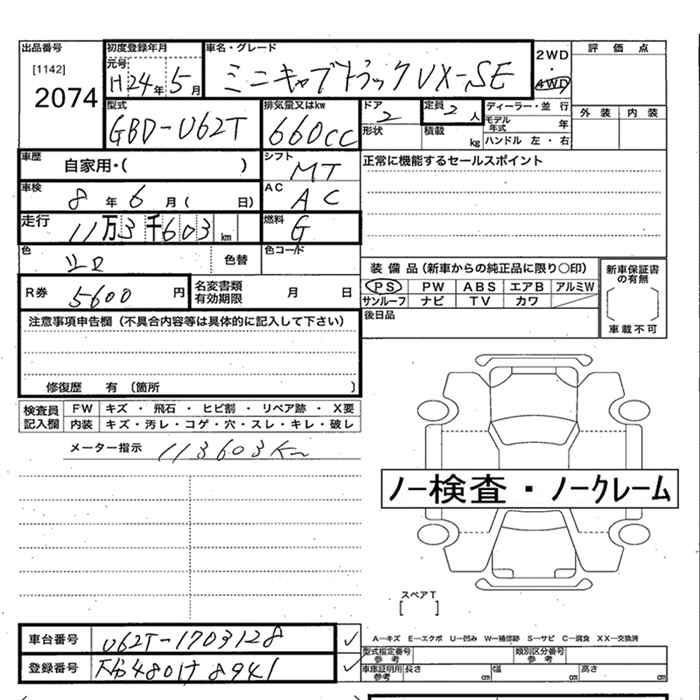 出品番号
[1142]
2074
初度登録年月
元号
H24年5月
車名・グレード
ミニキャブトラックVX-SE
2WD
・
4WD
評価点
外装 内装
型式
GBD-U62T
排気量又はkw
660cc
ドア
2
形状
定員
2人
積載
kg
ディーラー・並行
モデル年式 年
ハンドル 左・右
車歴
自家用・( )
シフト
MT
正常に機能するセールスポイント
車検
8年6月( 日)
AC
AC
走行
11万3千603km
燃料
G
色
シロ
色替
色コード
装備品(新車からの純正品に限り○印)
PS PW ABS エアB アルミW
サンルーフ ナビ TV カワ
新車保証書の有無
[ ]
車載不可
R券
5600円
名変書類有効期限 月 日
後日品
注意事項申告欄(不具合内容等は具体的に記入して下さい)
修復歴 有(箇所 )
検査員記入欄
FW キズ・飛石・ヒビ割・リペア跡・X要
内装 キズ・汚レ・コゲ・穴・スレ・キレ・破レ
メーター指示 113603Km
ノー検査・ノークレーム
スペアT
[ ]
車台番号
U62T-1703128
登録番号
A―キズ E―エクボ U―凹み W―補修跡 S―サビ C―腐食 XX―交換済
型式指定番号 参考
類別区分番号 参考
車庫証明用 参考
長さ cm 幅 cm 高さ cm